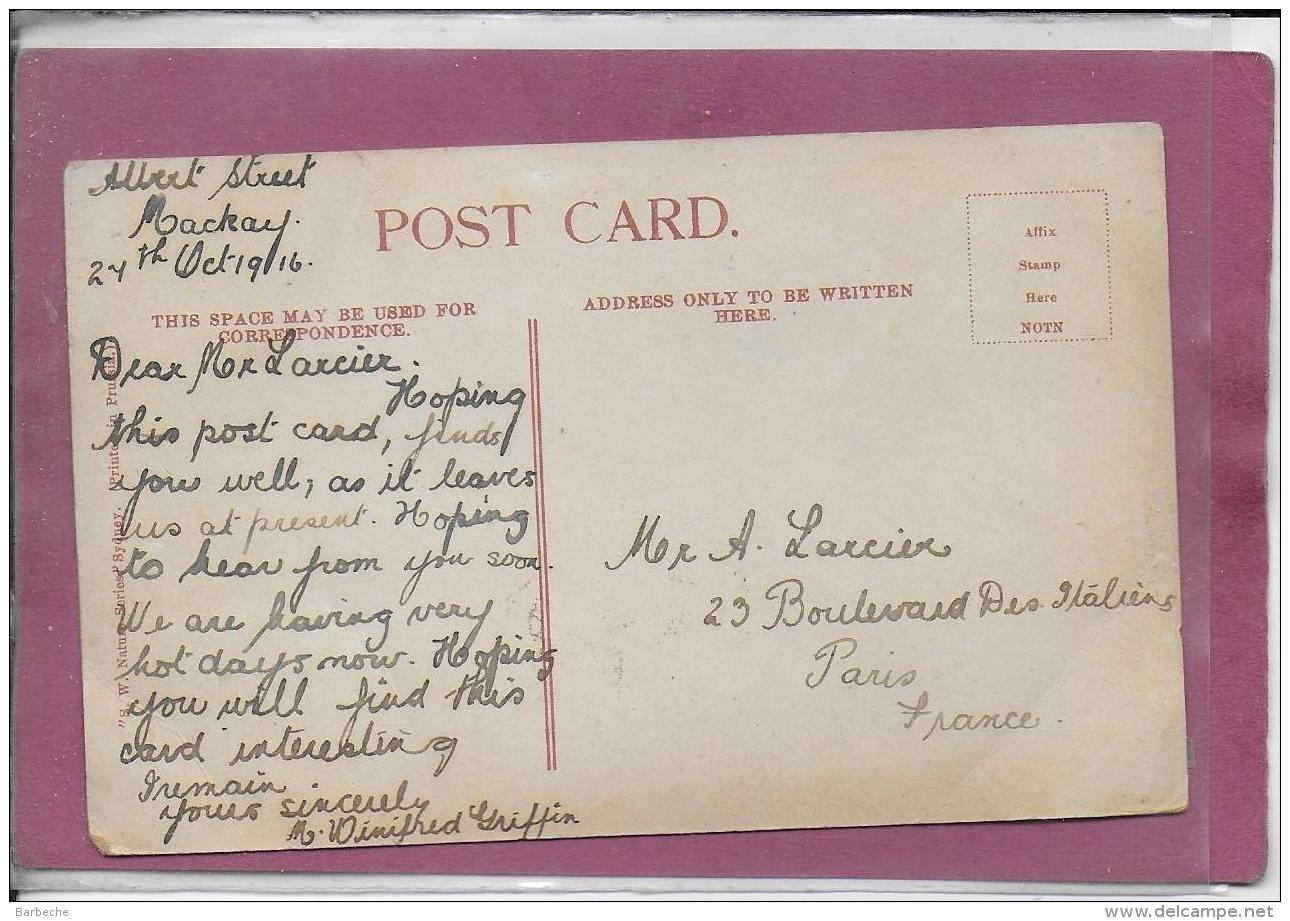 Albert Street
Mackay.
24th Oct 1916.
POST CARD.
THIS SPACE MAY BE USED FOR
CORRESPONDENCE.
ADDRESS ONLY TO BE WRITTEN
HERE.
Affix
Stamp
Here
NOTN
Dear Mr Larcier.
Hoping
this post card, finds
you well; as it leaves
us at present. Hoping
to hear from you soon.
We are having very
hot days now. Hoping
you will find this
card interesting
I remain
yours sincerely
M. Winifred Griffin
Mr A. Larcier
23 Boulevard Des Itāliens
Paris
France.
"S. W. Nature Series" Sydney. (Printed in Prussia.)
Barbeche
delcampe.net